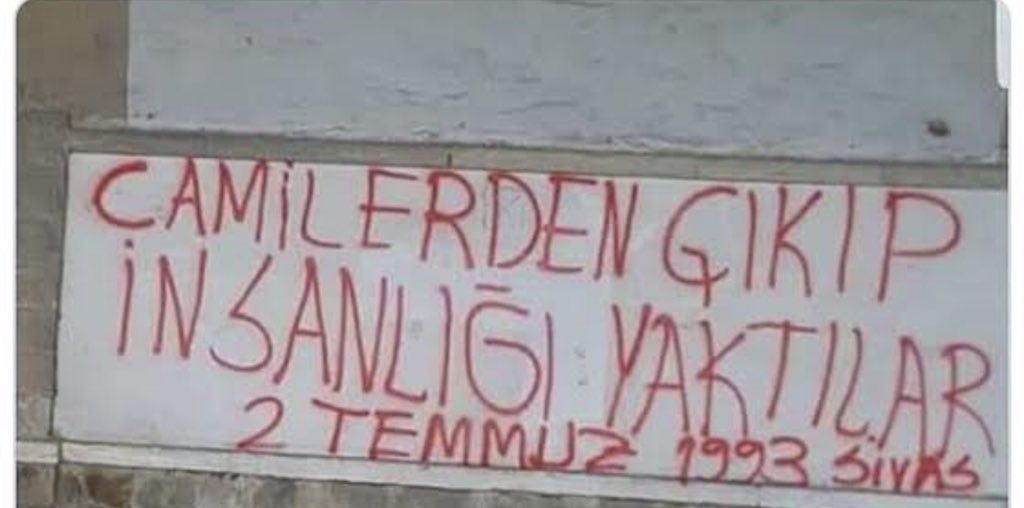 CAMİLERDEN ÇIKIP
İNSANLIĞI YAKTILAR
2 TEMMUZ 1993 SİVAS